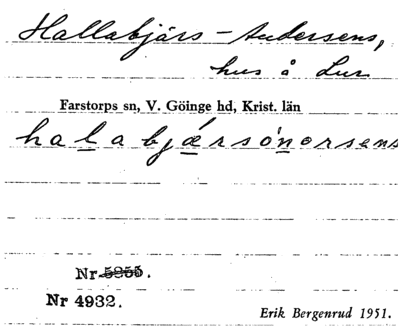 Hallabjärs-Andersens,
hus å Lur
Farstorps sn, V. Göinge hd, Krist. län
halabjærsónorsens
Nr 5255.
Nr 4932.
Erik Bergenrud 1951.